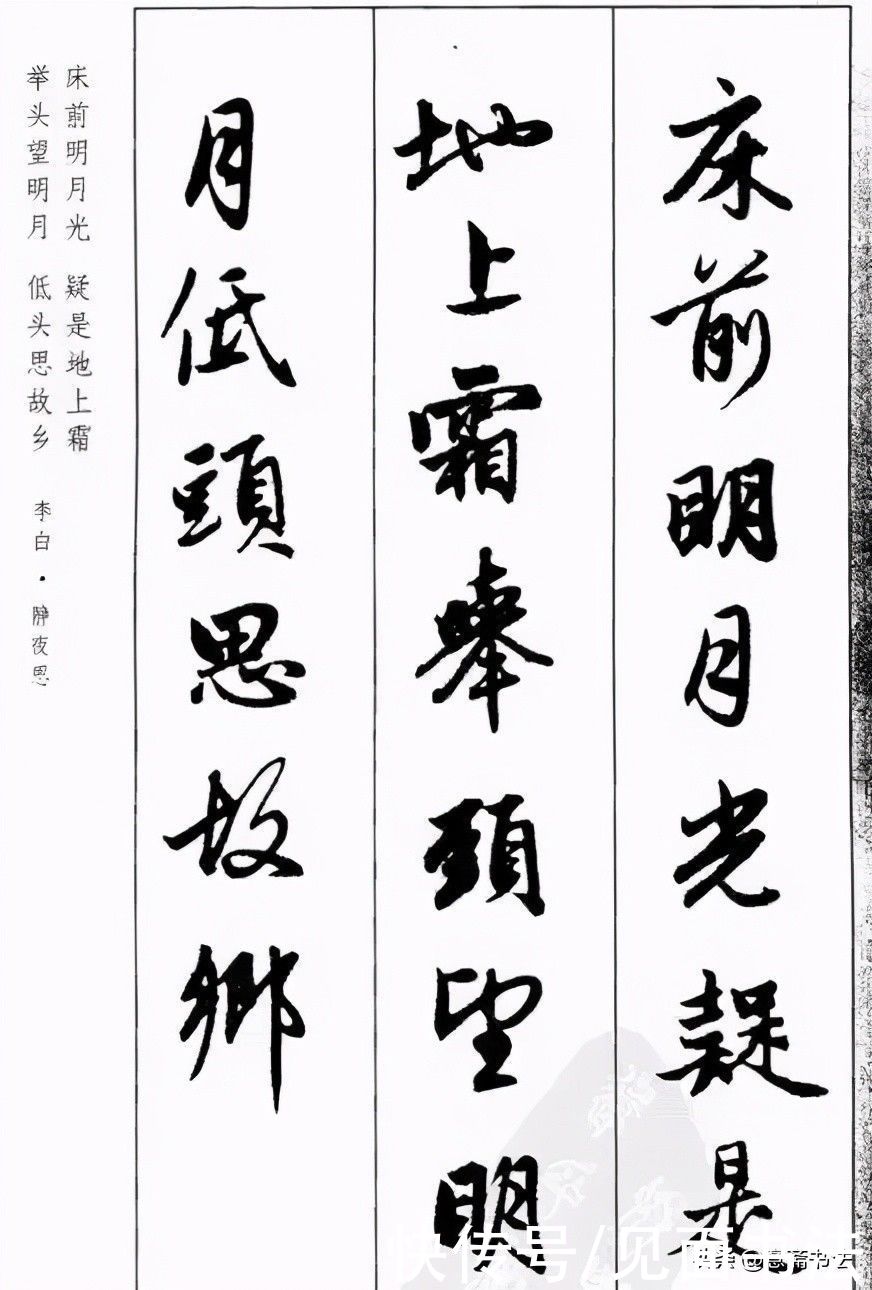 床前明月光疑是
地上霜舉頭望明
月低頭思故鄉
床前明月光 疑是地上霜
举头望明月 低头思故乡
李白·静夜思
快传号/见